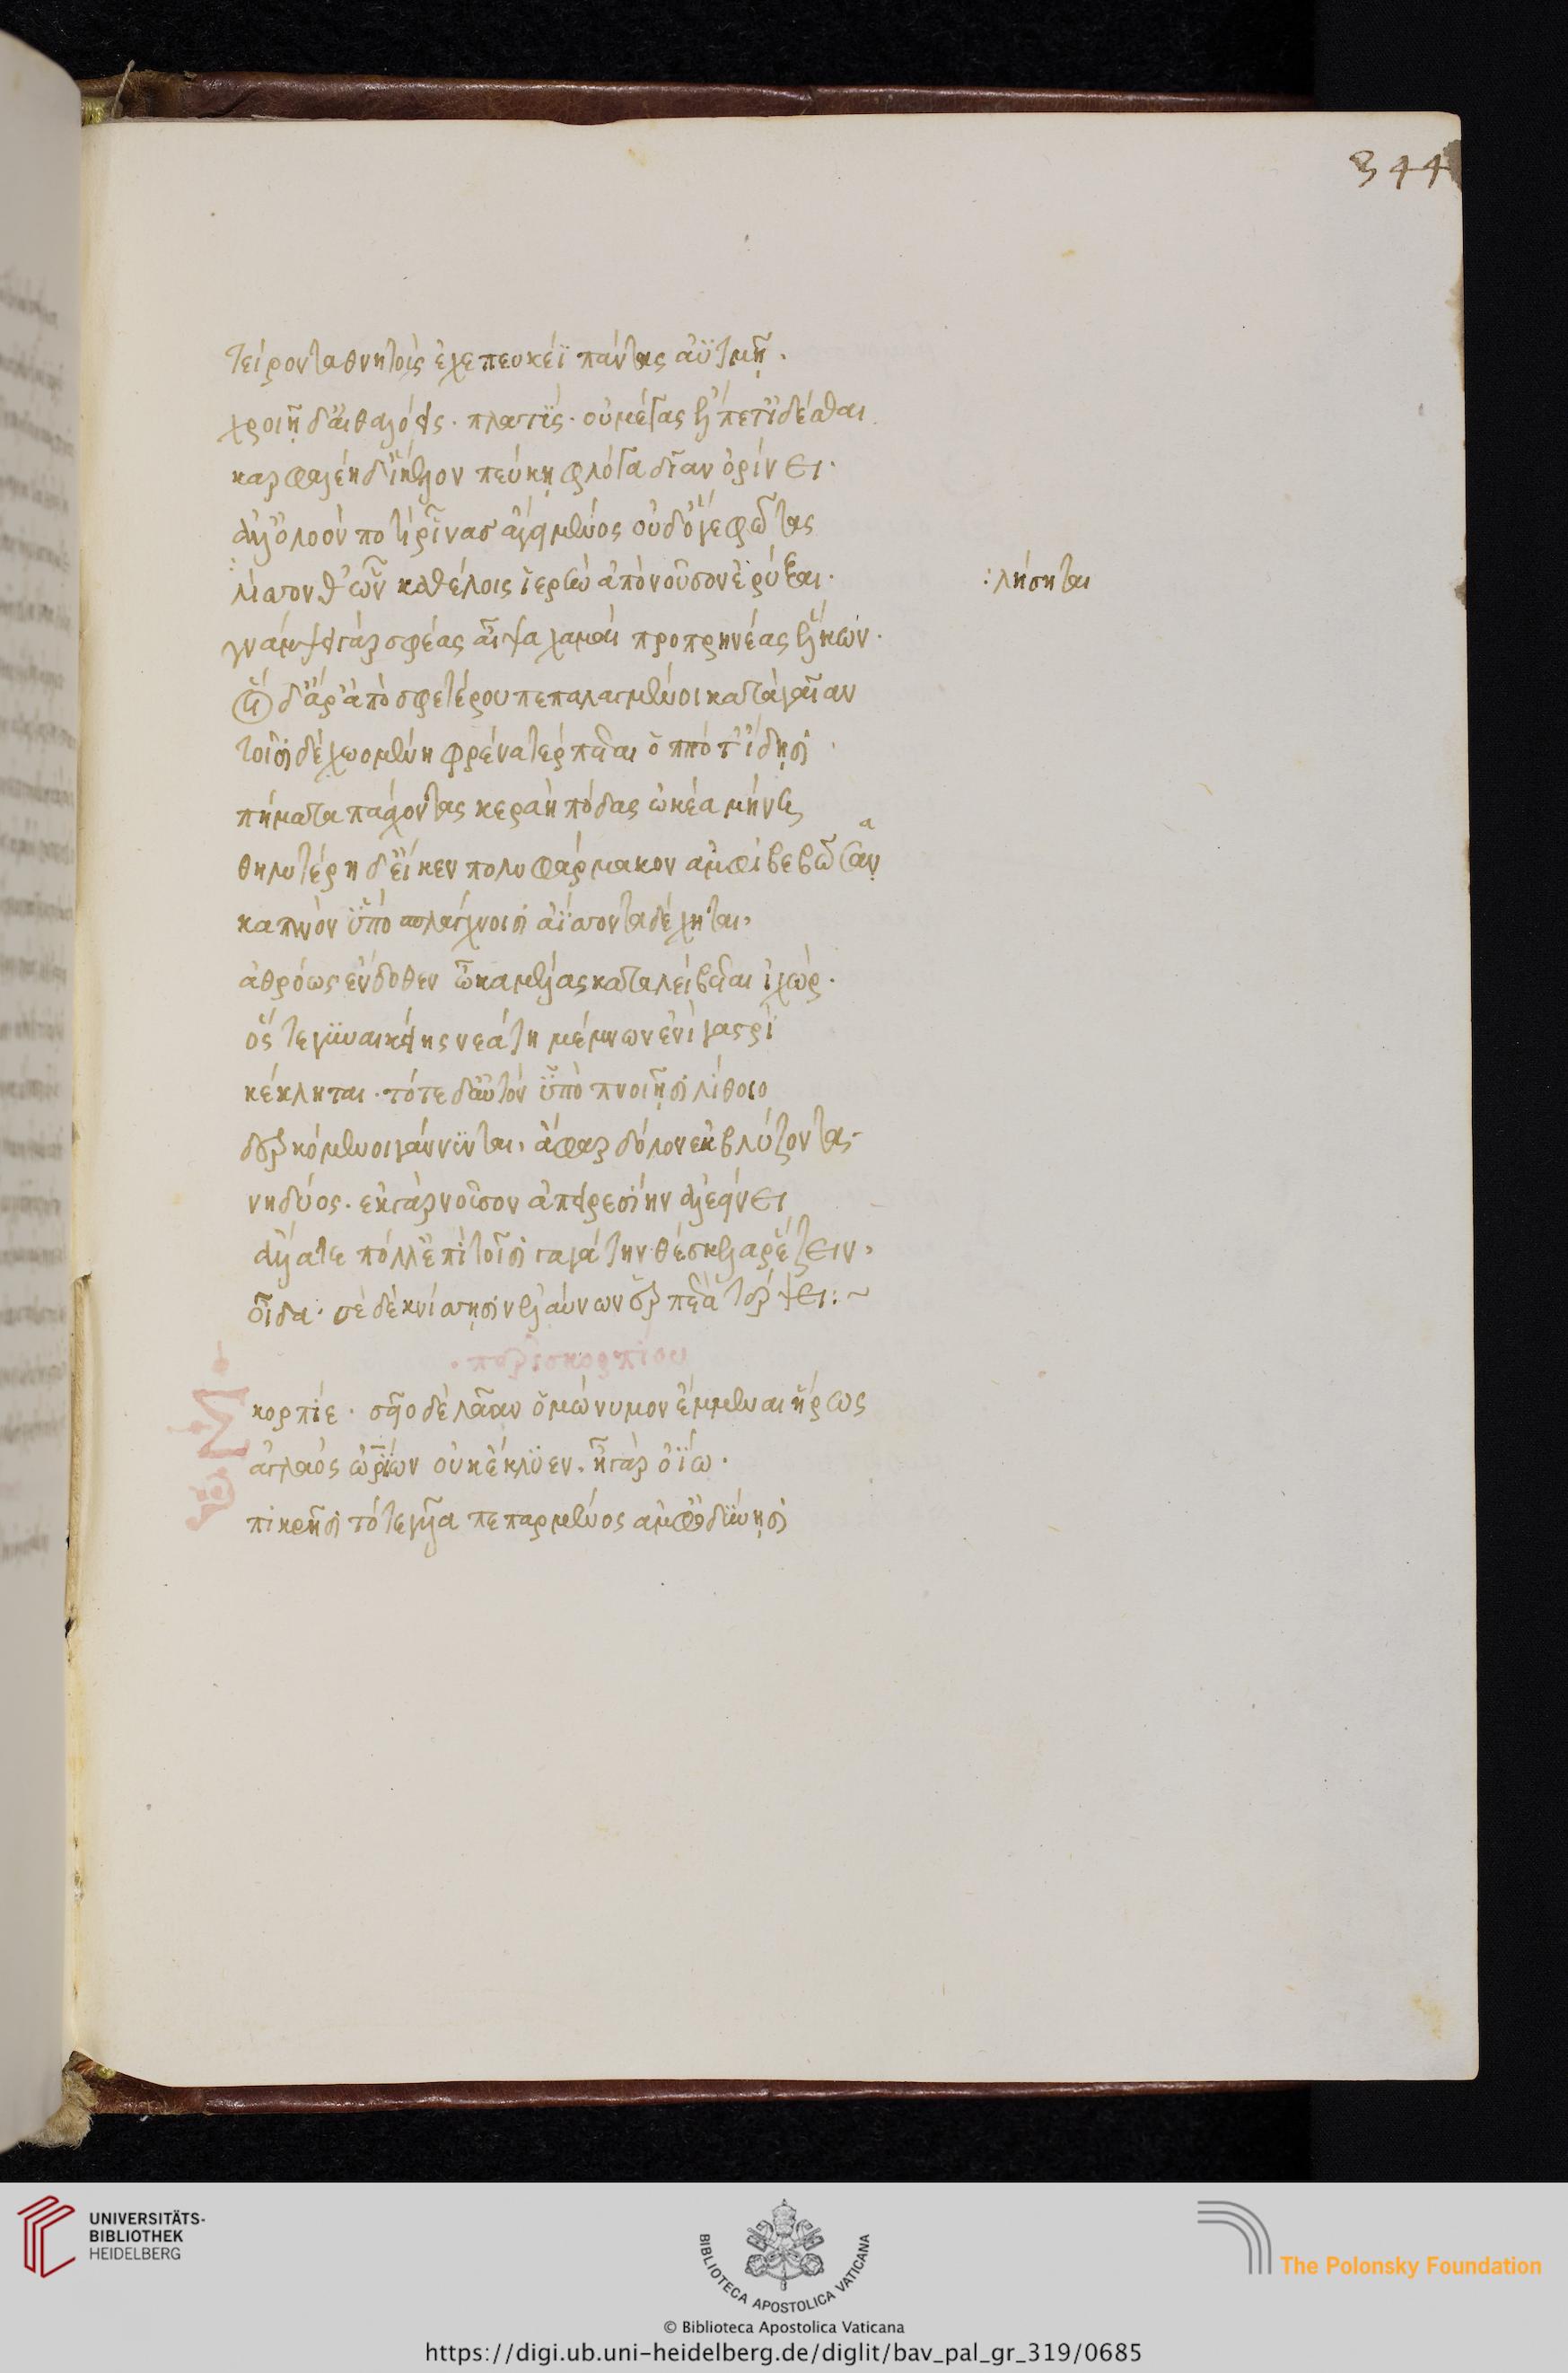 344
τείροντα θνητοὺς ἐχεπευκέϊ πάντας ἀϋτμῇ.
χροιῇ δ' αἰθαλόεις. πλατὺς. οὐ μέγας ἔπλετ' ἰδέσθαι
καρφαλέη δ' ἴκελον πεύκη φλόγα δῖαν ὀρίνει.
ἀλλ' ὀλοὸν ποτὶ ῥῖνας οὐδὸ γε φῶτας
καθέλοις ἱερὴν ἀπὸ νοῦσον ἐρύξαι.
:λήσηται
γνάμψει γάρ σφέας αἶψα χαμαὶ προπρηνέας ἕλκων.
οἱ δ' ἄρ' ἀπὸ σφετέρου πεπαλαγμένοι κατὰ γαῖαν
τοῖσι δὲ χωομένη φρένα τέρπεται ὁππότ' ἴδησι
πήματα πάσχοντας κεραὴ πόδας ὠκέα μήνη
θηλυτέρη δ' εἴ κεν πολυφάρμακον ἀμφιβεβῶσαν
α
καπνὸν ὑπὸ σπλάγχνοισι ἀΐσσοντα δέχηται,
ἀθρόως ἔνδοθεν ὦκα μέλας καταλείβεται ἰχὼρ.
ὅς τε γυναικείης νεάτη μέμνων ἐνὶ γαστρὶ
κέκληται. τότε δ' αὐτὸν ὑπὸ πνοιῇσι λίθοιο
δερκόμενοι γάννυνται, ἄφαρ δόλον ἐκβλύζοντας.
νηδύος. ἐκ γὰρ νοῦσον ἀπειρεσίην ἀλεείνει
ἄλλα τε πόλλ' ἐπὶ τοῖσι γαγάτην θέσκελα ῥέζειν.
οἶδα. σὲ δὲ κνίσσησιν ἐλαύνων ἑρπετὰ τέρψει:~
περὶ σκορπίου
Σκορπίε. σεῖο δὲ λᾶαν ὁμώνυμον ἔμμεναι ἥρως
ἀγλαὸς ὠρίων οὐκ ἔκλυεν. ἦ γὰρ ὀΐω.
πικρῇσι τότε γυῖα πεπαρμένος ἀμφ' ὀδύνησι
UNIVERSITÄTS-
BIBLIOTHEK
HEIDELBERG
BIBLIOTECA APOSTOLICA VATICANA
The Polonsky Foundation
© Biblioteca Apostolica Vaticana
https://digi.ub.uni-heidelberg.de/diglit/bav_pal_gr_319/0685